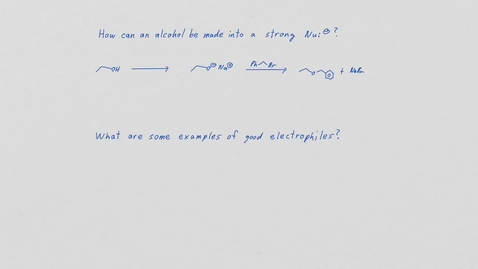 How can an alcohol be made into a strong Nu:⊖?
OH → O⊖ Na⊕ Ph Br → O + NaBr
What are some examples of good electrophiles?